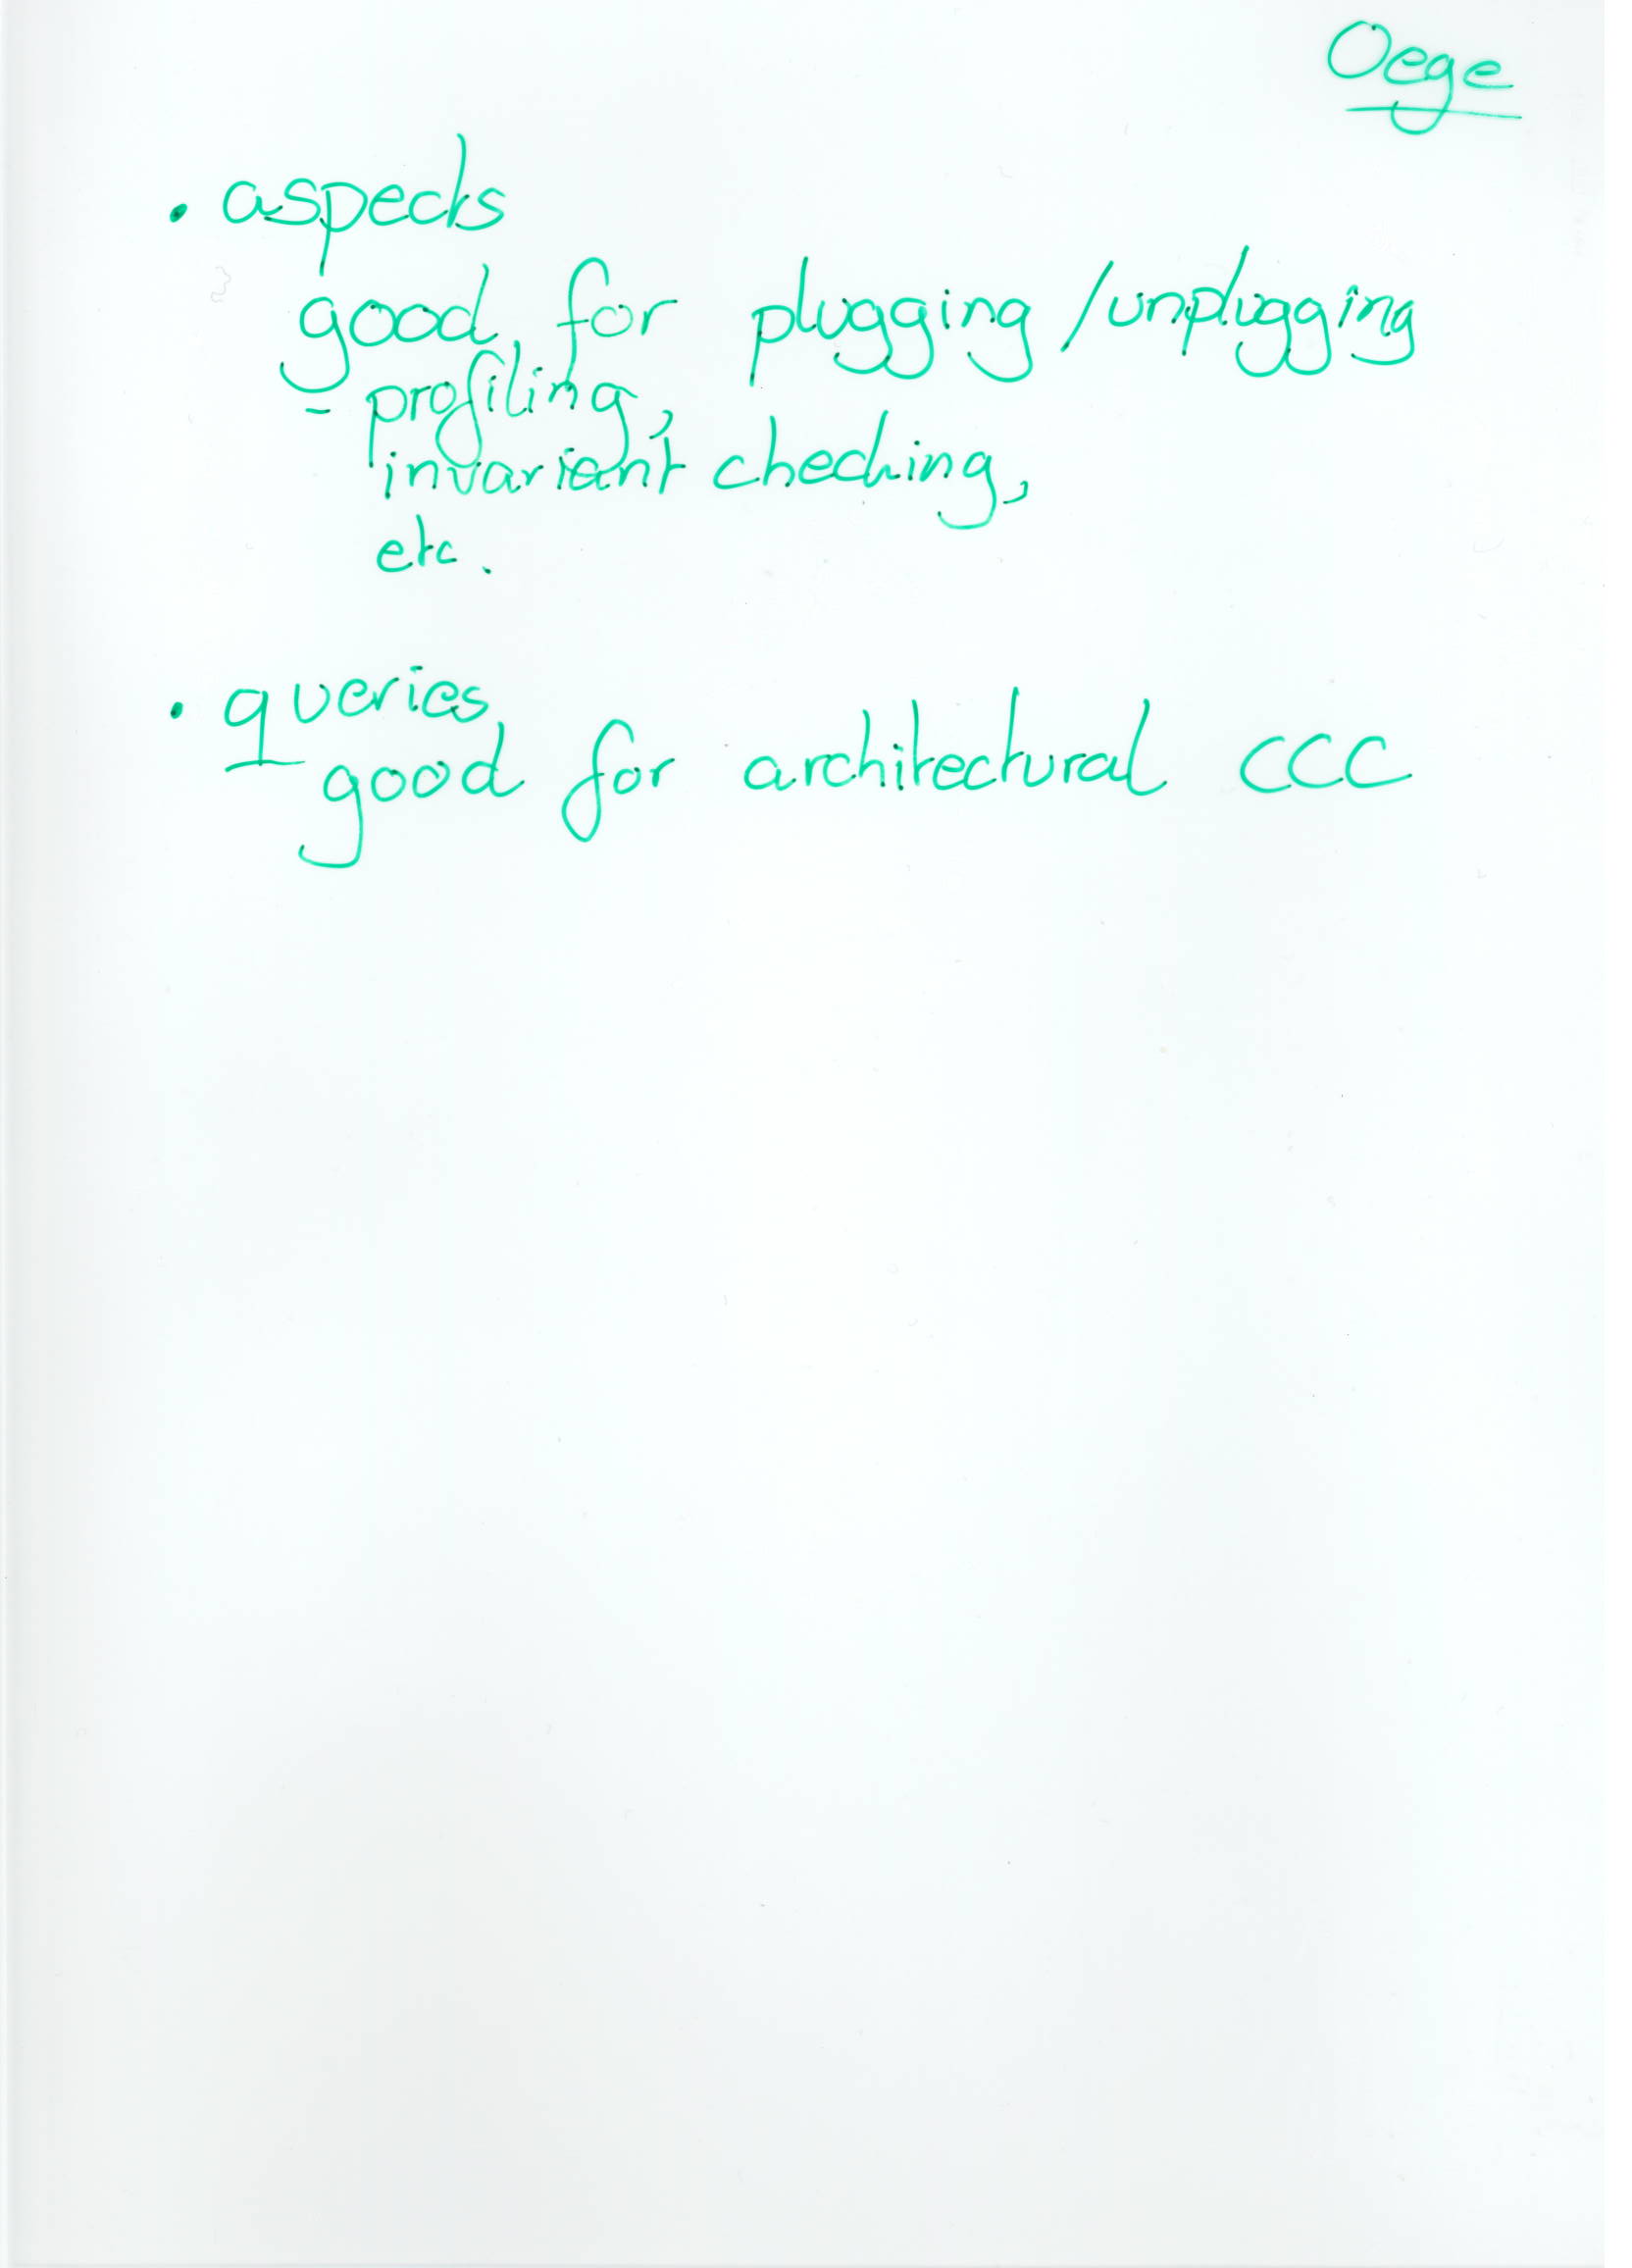 Oege
• aspects
good for plugging / unplugging
- profiling,
invariant checking,
etc.
• queries
good for architectural CCC